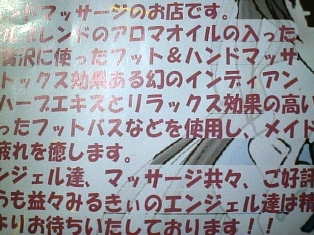 マッサージのお店です。
ブレンドのアロマオイルの入った、
贅沢に使ったフット＆ハンドマッサ
トックス効果ある幻のインディアン
ハーブエキスとリラックス効果の高い
ったフットバスなどを使用し、メイド
疲れを癒します。
ンジェル達、マッサージ共々、ご好評
つも益々みるきぃのエンジェル達は精
よりお待ちいたしております！！